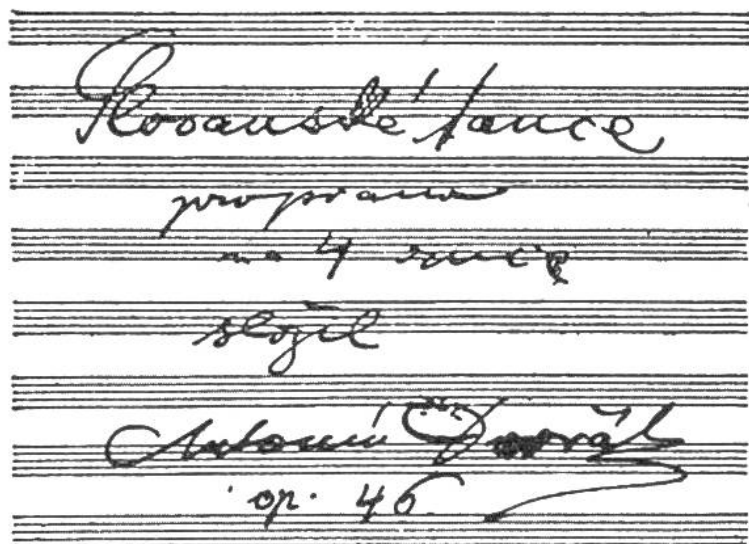 Slovanské tance
pro piano
na 4 ruce
složil
Antonín Dvořák
op. 46.